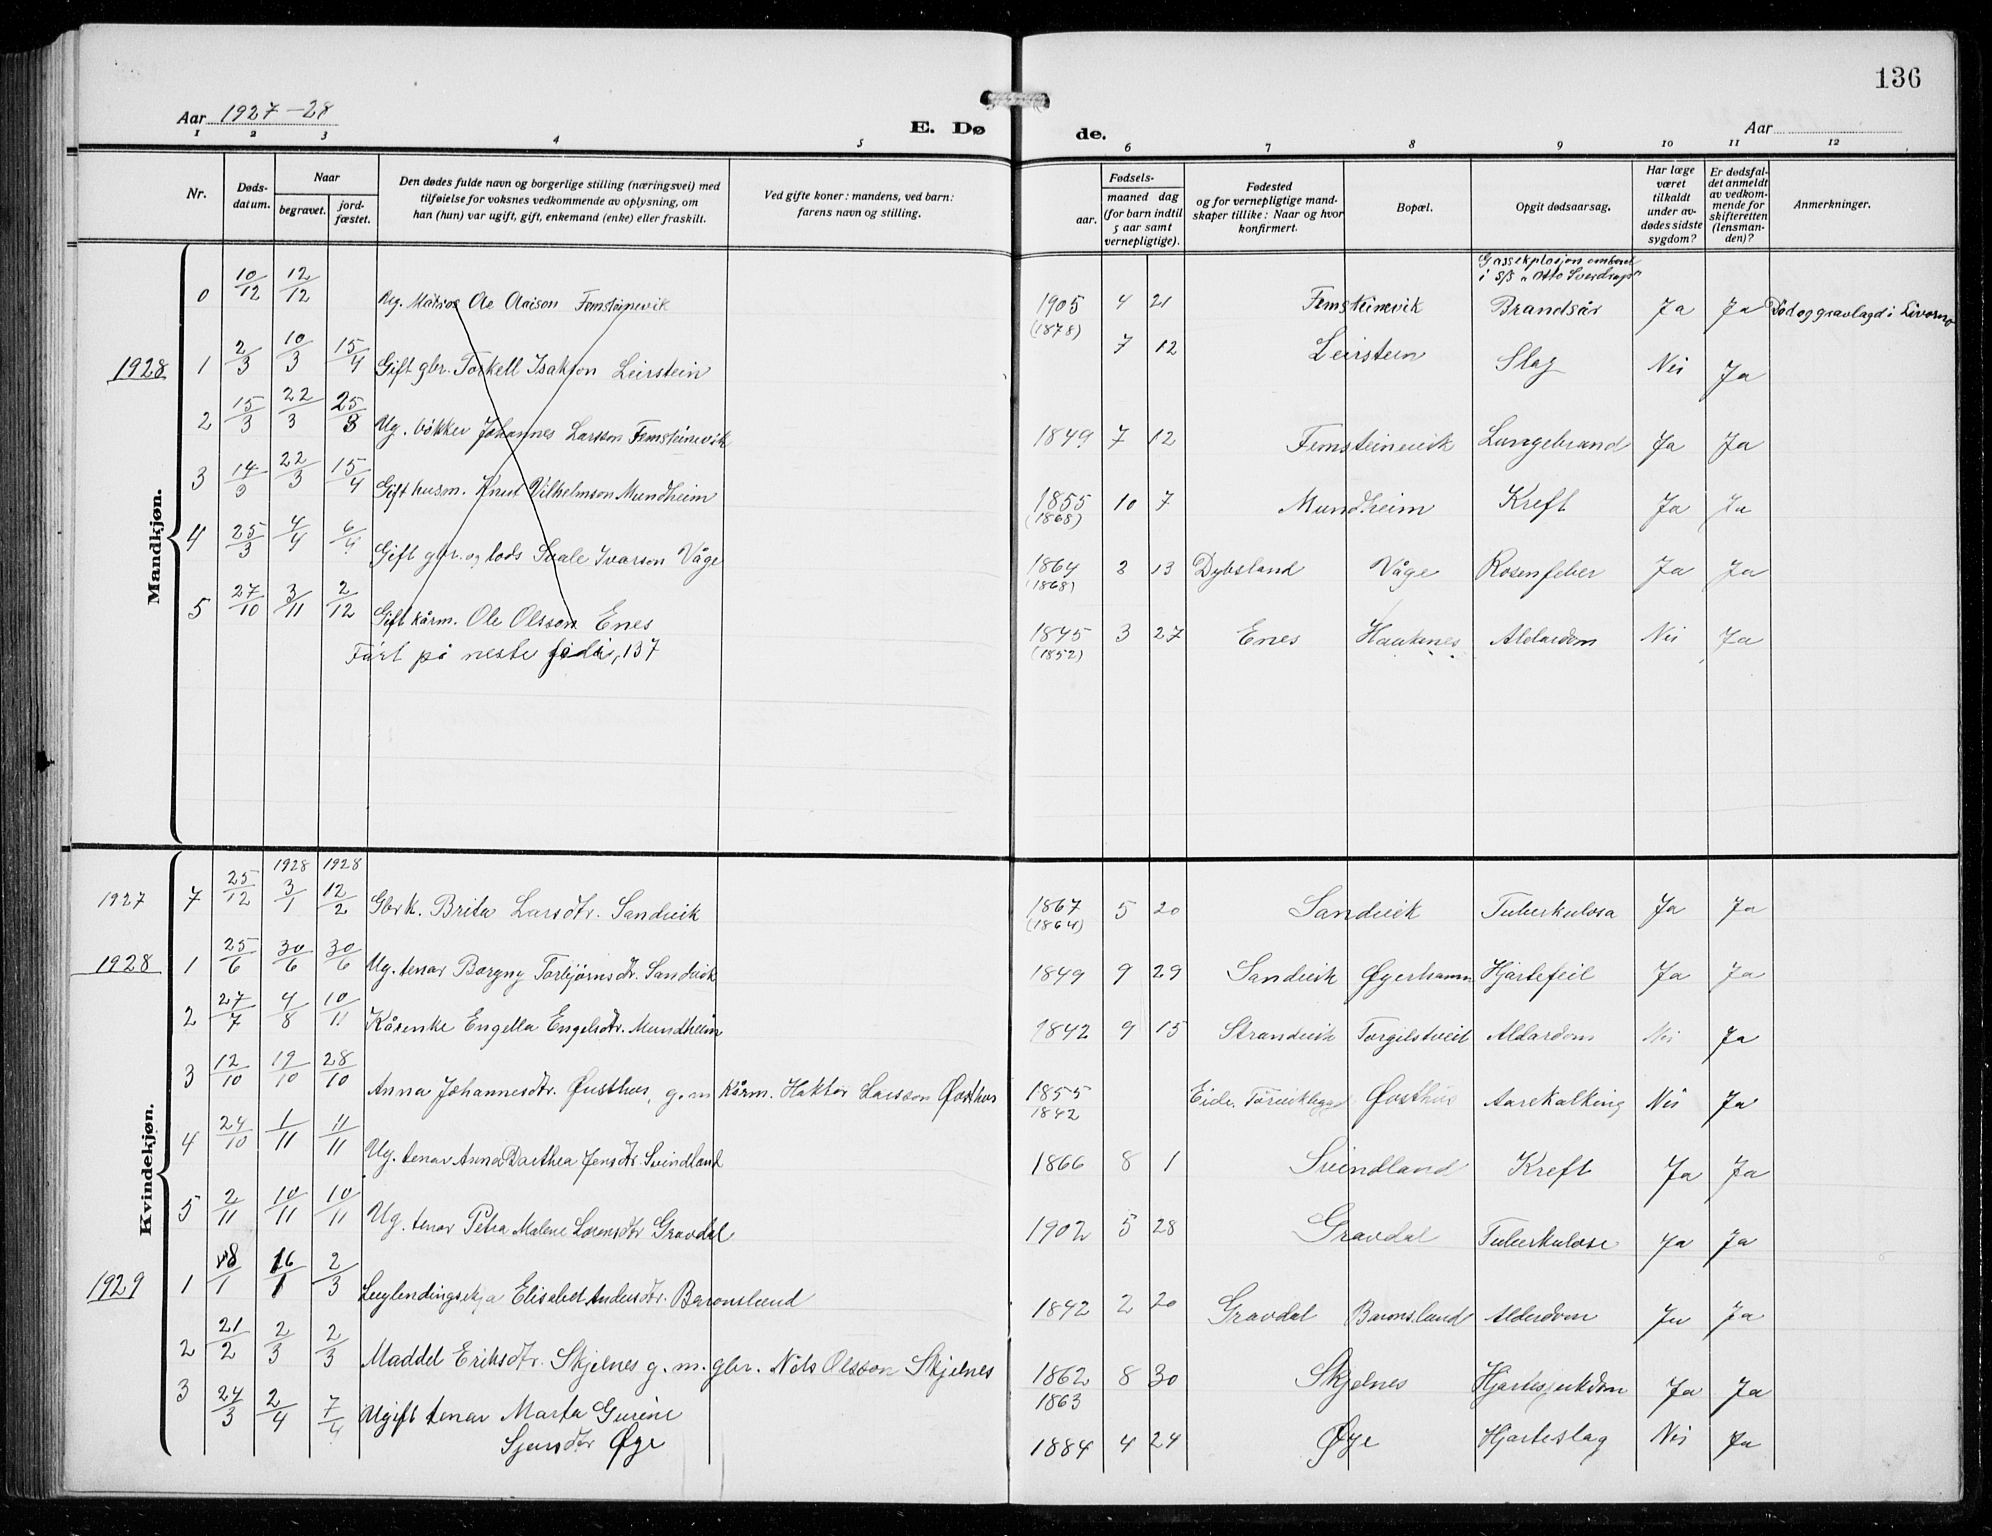 136
Aar 1927-28
E. Dø de.
Aar
1 2 3 4 5 6 7 8 9 10 11 12
Nr.
Døds-datum.
Naar
begravet.
jord-fæstet.
Den dødes fulde navn og borgerlige stilling (næringsvei) med
tilføielse for voksnes vedkommende av oplysning, om
han (hun) var ugift, gift, enkemand (enke) eller fraskilt.
Ved gifte koner: mandens, ved barn:
farens navn og stilling.
Fødsels-
aar.
maaned dag
(for barn indtil
5 aar samt
vernepligtige).
Fødested
og for vernepligtige mand-
skaper tillike: Naar og hvor
konfirmert.
Bopæl.
Opgit dødsaarsag.
Har læge
været
tilkaldt
under av-
dødes sidste
sygdom?
Er dødsfal-
det anmeldt
av vedkom-
mende for
skifteretten
(lensman-
den)?
Anmerkninger.
Mandkjøn.
0 10/12 12/12 Ug. Matros Ole Olaison Femsteinevik 1905 4 21 Femsteinevik Gassexplosjon ombord i S/S "Otto Sverdrup" Brandsår Ja Ja Død og gravlagd i Livorno
1928 1 2/3 10/3 15/4 Gift gbr. Torkell Isakson Leirstein (1878) 7 12 Leirstein Slag Nei Ja
2 15/3 22/3 25/3 Ug. bøkker Johannes Larsson Femsteinevik 1849 7 12 Femsteinevik Lungebrand Ja Ja
3 14/3 22/3 15/4 Gift husm. Knut Vilhelmson Mundheim 1855 (1868) 10 7 Mundheim Kreft Ja Ja
4 25/3 4/4 6/4 Gift gbr. og lods Svale Ivarson Våge 1864 (1868) 3 13 Dybsland Våge Rosenfeber Ja Ja
5 27/10 3/11 2/12 Gift kårm. Ole Olsson Enes 1845 (1852) 3 27 Enes Haukenes Aldardom Nei Ja
Ført på neste side, 137
Kvindekjøn.
1928 1928
1927 7 25/12 3/1 12/2 Gbrk. Brita Larsdtr. Sandvik 1867 (1864) 5 20 Sandvik Tuberkulosa Ja Ja
1928 1 25/6 30/6 30/6 Ug. tenar Borgny Torbjørnsdtr. Sandvik 1849 9 29 Sandvik Øyerhamn Hjartefeil Ja Ja
2 27/7 4/8 10/11 Kårenke Engella Engelsdtr. Mundheim 1842 9 15 Strandvik Torgilstveit Aldardom Nei Ja
3 12/10 19/10 28/10 Anna Johannesdtr. Øusthus, g. m. Kårm. Haktor Larsson Øusthus 1855 1842 Eide, Øusthus Aarekalking Nei Ja
4 24/10 1/11 11/11 Ug. tenar Anna Dorthea Jensdtr. Svindland 1866 8 1 Svindland Kreft Ja Ja
5 2/11 10/11 10/11 Ug. tenar Petra Malene Lorensdtr Gravdal 1902 5 28 Gravdal Tuberkulose Ja Ja
1929 1 8/1 16/1 2/3 Leylendingsekja Elisabet Andersdtr. Baronsland 1842 2 20 Gravdal Baronsland Alderdom Ja Ja
2 21/2 2/3 2/3 Maddel Eriksdtr. Skjelnes g. m. gbr. Nils Olsson Skjelnes 1862 1863 8 30 Skjelnes Hjartesjukdom Ja Ja
3 24/3 2/4 7/4 Ugift tenar Marta Gurine
Sjursdtr Øye 1884 4 24 Øye Hjarteslag Nei Ja